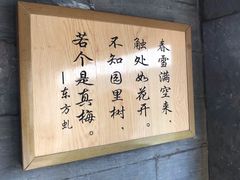 春雪满空来，
触处如花开。
不知园里树，
若个是真梅。
—东方虬